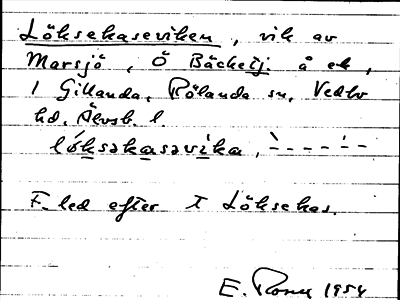 Löksekaseviken, vik av
Marsjö, Ö Bäckeij å ek,
1 Gillanda, Rölanda sn, Vedbo
hd. Älvsb. l.
lóksəkasəvika,
F-led efter T Löksekas.
E. 1954